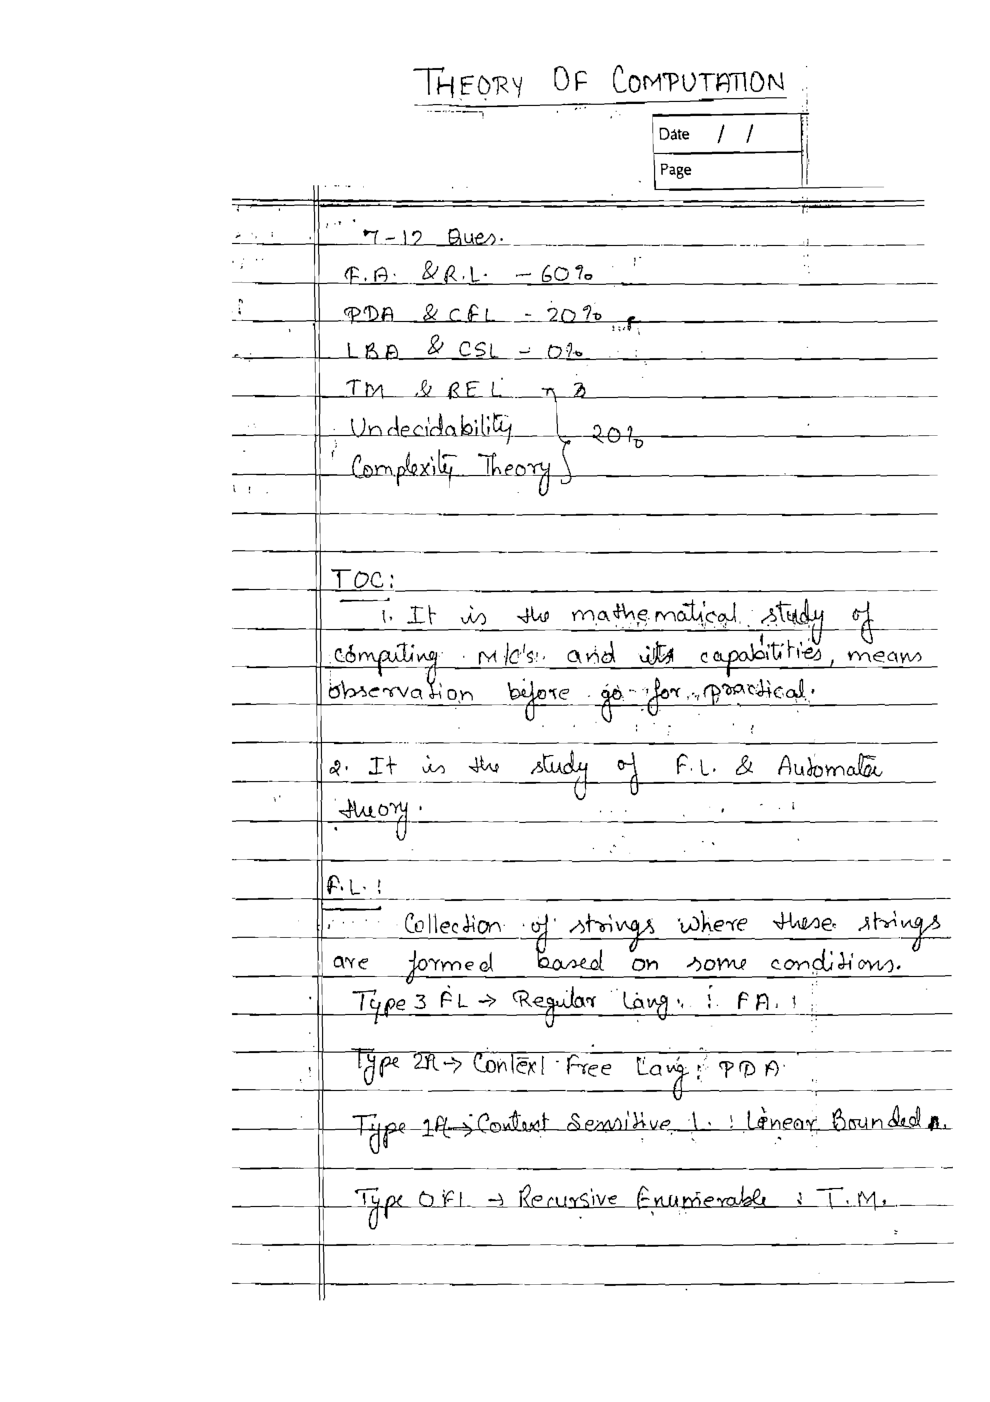 THEORY OF COMPUTATION
Date / /
Page
7-12 Ques.
F.A. & R.L. - 60%
PDA & CFL - 20%
LBA & CSL - 0%
TM & REL
Undecidability 20%
Complexity Theory
TOC:
1. It is the mathematical study of
computing M/C's. and its capabitities, means
observation before go for practical.
2. It is the study of F.L. & Automata
theory.
F.L. :
Collection of strings where these strings
are formed based on some conditions.
Type 3 FL → Regular Lang. : FA.
Type 2FL → Context Free Lang : PDA
Type 1FL → Context Sensitive L. : Linear Bounded A.
Type 0 FL → Recursive Enumerable : T.M.